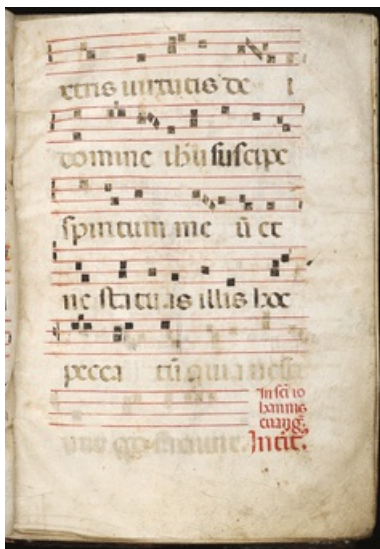 extris uirtutis de i
domine ihu suscipe
spiritum me ū et
ne statuas illis hoc
pecca tū quia nesci
In sci io
hannis
euang.